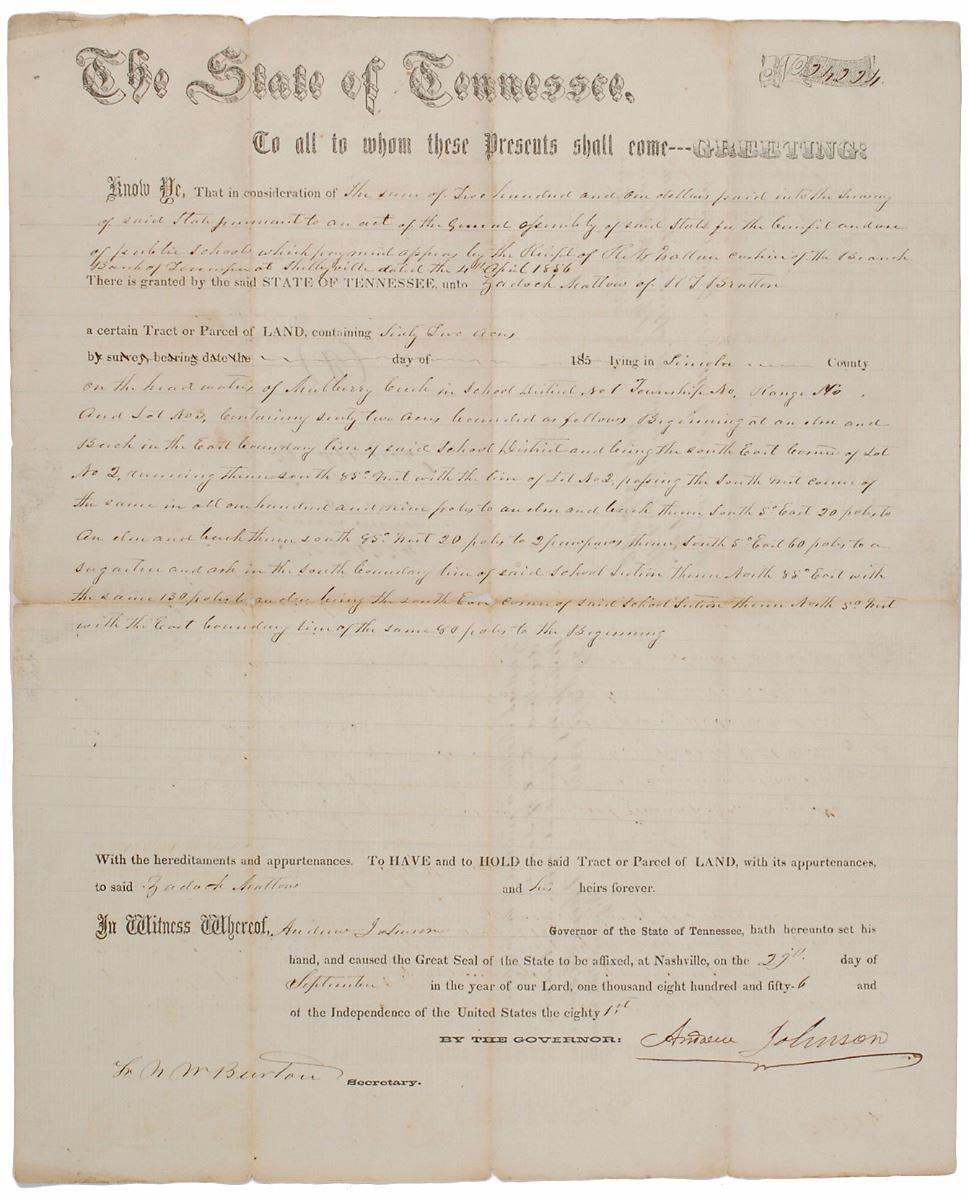 The State of Tennessee.
No 24224
To all to whom these Presents shall come---GREETING:
Know Ye, That in consideration of the sum of Two hundred and one dollars paid into the
of said State pursuant to an act of the General Assembly of said State for the benefit and use
of public Schools which payment appears by the Receipt of cashier of the Branch
Bank of Tennessee at Shelbyville dated the 4th April 1856
There is granted by the said STATE OF TENNESSEE, unto Zadock Mottow of Bratten
a certain Tract or Parcel of LAND, containing Sixty Two Acres
by survey bearing date the day of 185 lying in Lincoln County
on the head waters of Mulberry Creek in School District No 1 Township No, Range No ,
And Lot No 3, Containing sixty two Acres bounded as follows Beginning at an elm and
Beech in the East boundary line of said School District and being the south East Corner of Lot
No 2, running thence south 85° West with the line of Lot No 2, passing the South West corner of
the same in all one hundred and nine poles to an elm and beech thence South 5° East 20 poles to
an elm and beech thence south 85° West 20 poles to 2 pawpaws thence South 5° East 60 poles to a
sugartree and ash in the south boundary line of said School Section thence North 85° East with
the same 130 poles to an elm being the south East corner of said School Section thence North 5° West
with the East boundary line of the same 80 poles to the Beginning
With the hereditaments and appurtenances. To HAVE and to HOLD the said Tract or Parcel of LAND, with its appurtenances,
to said Zadock Mottow and his heirs forever.
In Witness Whereof, Andrew Johnson Governor of the State of Tennessee, hath hereunto set his
hand, and caused the Great Seal of the State to be affixed, at Nashville, on the 29th day of
September in the year of our Lord, one thousand eight hundred and fifty-6 and
of the Independence of the United States the eighty 1st
BY THE GOVERNOR: Andrew Johnson
F N W Burton Secretary.